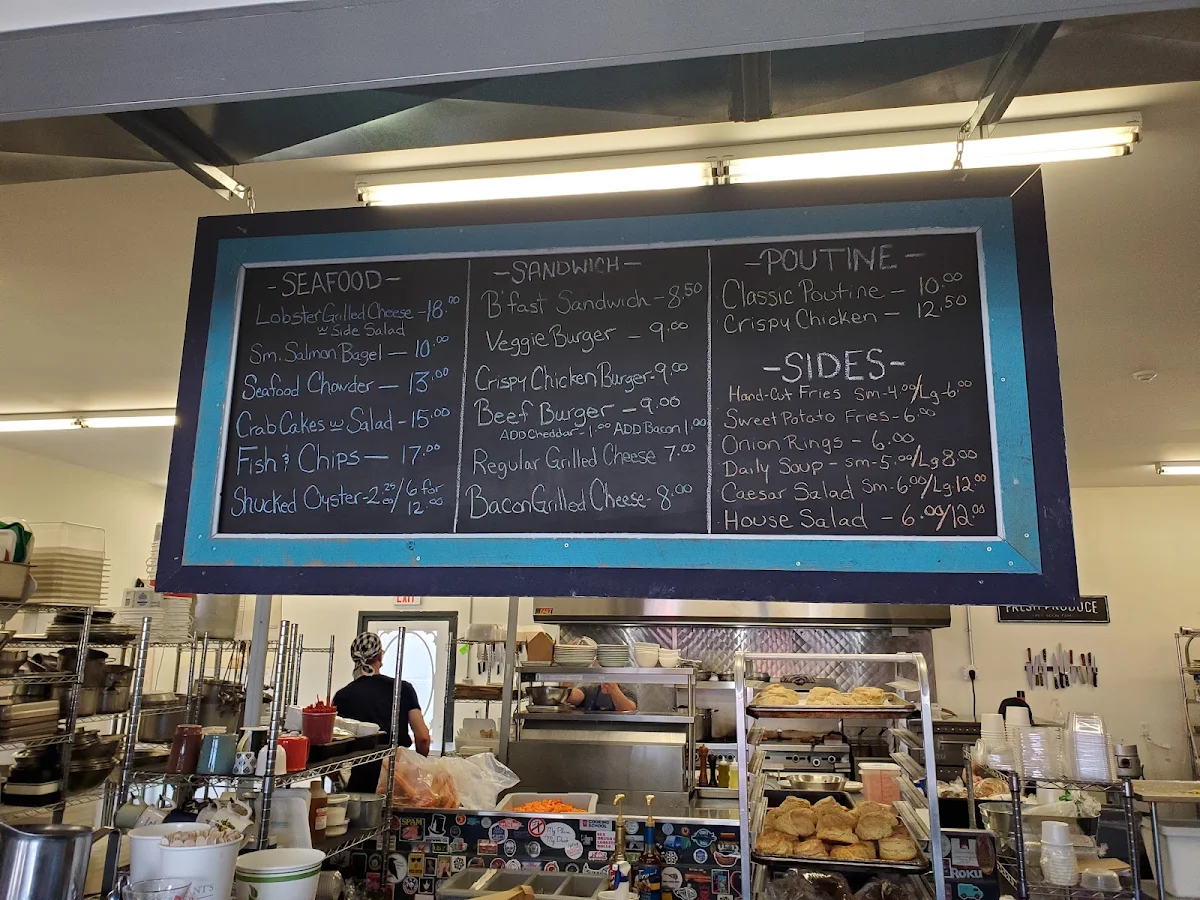 -SEAFOOD-
Lobster Grilled Cheese -18.00
w Side Salad
Sm. Salmon Bagel — 10.00
Seafood Chowder — 13.00
Crab Cakes w Salad -15.00
Fish & Chips — 17.00
Shucked Oyster-2.25/6 for
12.00
-SANDWICH-
B'fast Sandwich - 8.50
Veggie Burger - 9.00
Crispy Chicken Burger-9.00
Beef Burger - 9.00
ADD Cheddar - 1.00 ADD Bacon 1.00
Regular Grilled Cheese 7.00
Bacon Grilled Cheese- 8.00
-POUTINE-
Classic Poutine - 10.00
Crispy Chicken - 12.50
-SIDES-
Hand-Cut Fries Sm-4.00/Lg-6.00
Sweet Potato Fries-6.00
Onion Rings - 6.00
Daily Soup - sm-5.00/Lg 8.00
Caesar Salad Sm-6.00/Lg.12.00
House Salad - 6.00/12.00
EXIT
FRESH PRODUCE
SPAM
ROKU